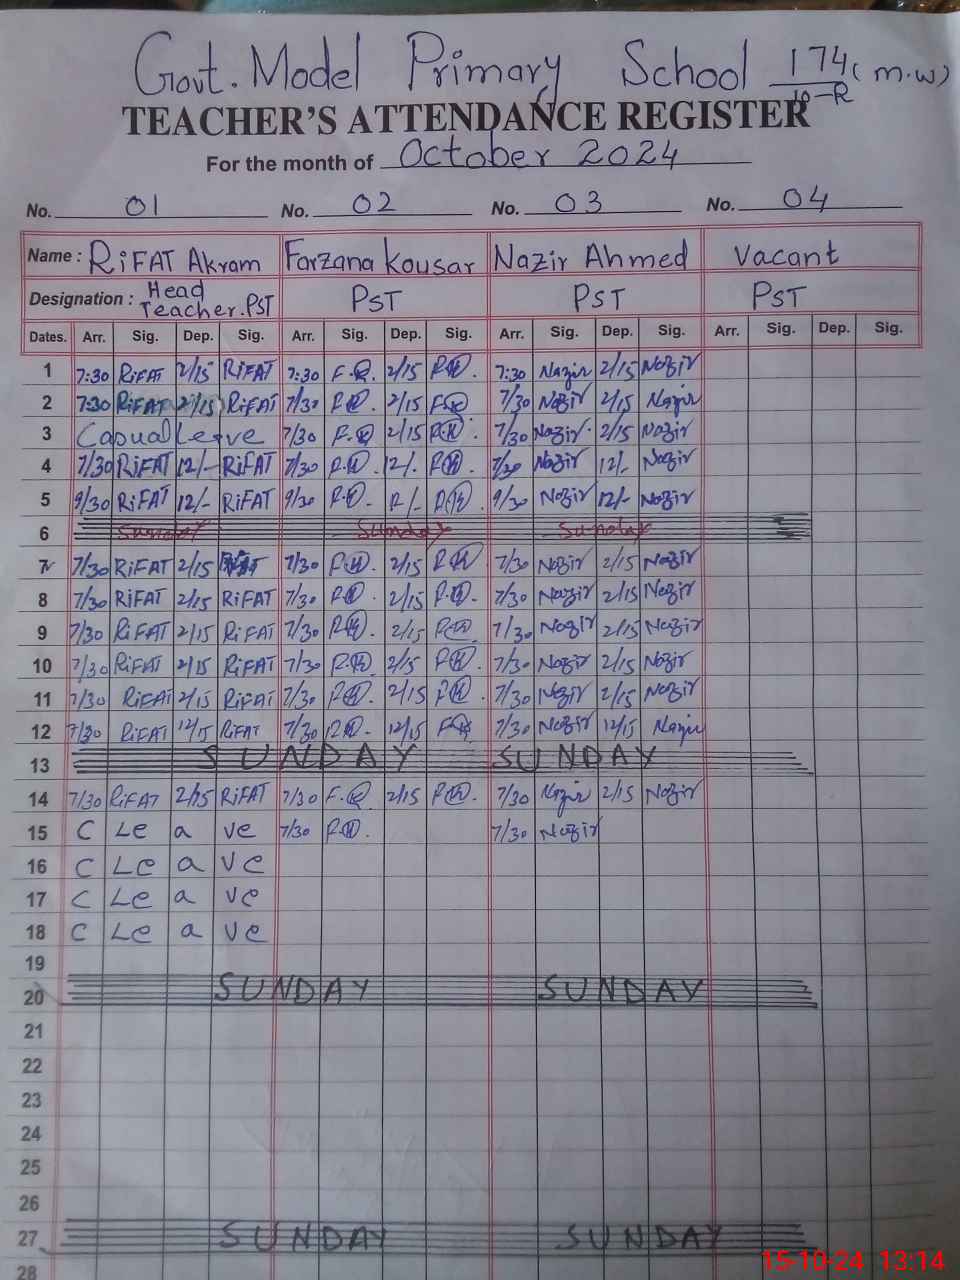 Govt. Model Primary School 174/10-R (m.w)
TEACHER'S ATTENDANCE REGISTER
For the month of October 2024
No. 01 No. 02 No. 03 No. 04
Name : RiFAT Akram Farzana Kousar Nazir Ahmed Vacant
Designation : Head Teacher.PST PST PST PST
Dates. Arr. Sig. Dep. Sig. Arr. Sig. Dep. Sig. Arr. Sig. Dep. Sig. Arr. Sig. Dep. Sig.
1 7:30 RiFAT 2/15 RiFAT 7:30 2/15 7:30 Nazir 2/15 Nazir
2 7:30 RiFAT 2/15 RiFAT 7/30 2/15 7/30 Nazir 2/15 Nazir
3 Casual Leave 7/30 2/15 7/30 Nazir 2/15 Nazir
4 7/30 RiFAT 12/- RiFAT 7/30 12/- 7/30 Nazir 12/- Nazir
5 9/30 RiFAT 12/- RiFAT 9/30 9/30 Nazir 12/- Nazir
6 Sunday Sunday Sunday
7 7/30 RiFAT 2/15 7/30 2/15 7/30 Nazir 2/15 Nazir
8 7/30 RiFAT 2/15 RiFAT 7/30 2/15 7/30 Nazir 2/15 Nazir
9 7/30 RiFAT 2/15 RiFAT 7/30 2/15 7/30 Nazir 2/15 Nazir
10 7/30 RiFAT 2/15 RiFAT 7/30 2/15 7/30 Nazir 2/15 Nazir
11 7/30 RiFAT 2/15 RiFAT 7/30 2/15 7/30 Nazir 2/15 Nazir
12 7/30 RiFAT 12/15 RiFAT 7/30 12/15 7/30 Nazir 12/15 Nazir
13 SUNDAY SUNDAY
14 7/30 RiFAT 2/15 RiFAT 7/30 2/15 7/30 Nazir 2/15 Nazir
15 C Leave 7/30 7/30 Nazir
16 C Leave
17 C Leave
18 C Leave
19
20 SUNDAY SUNDAY
21
22
23
24
25
26
27 SUNDAY SUNDAY
28
15-10-24 13:14